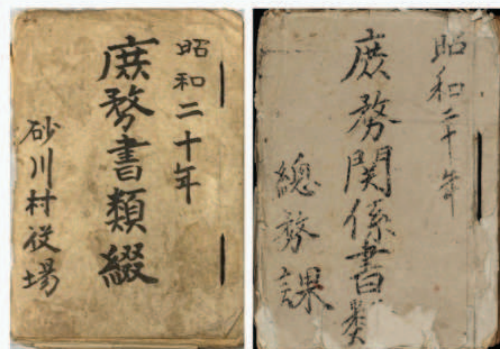 昭和二十年
庶務書類綴
砂川村役場
昭和二十年
庶務関係書類
總務課